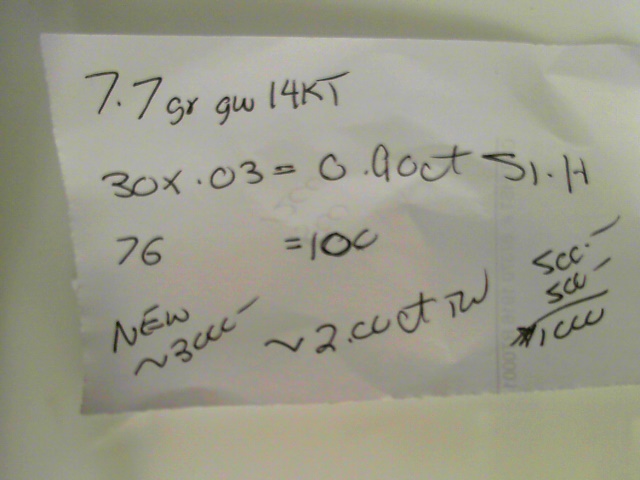 7.7 gr gw 14KT
30x.03 = 0.90ct SI.H
76 =100
NEW
~3000-
~2.00ct TW
500-
500-
1000